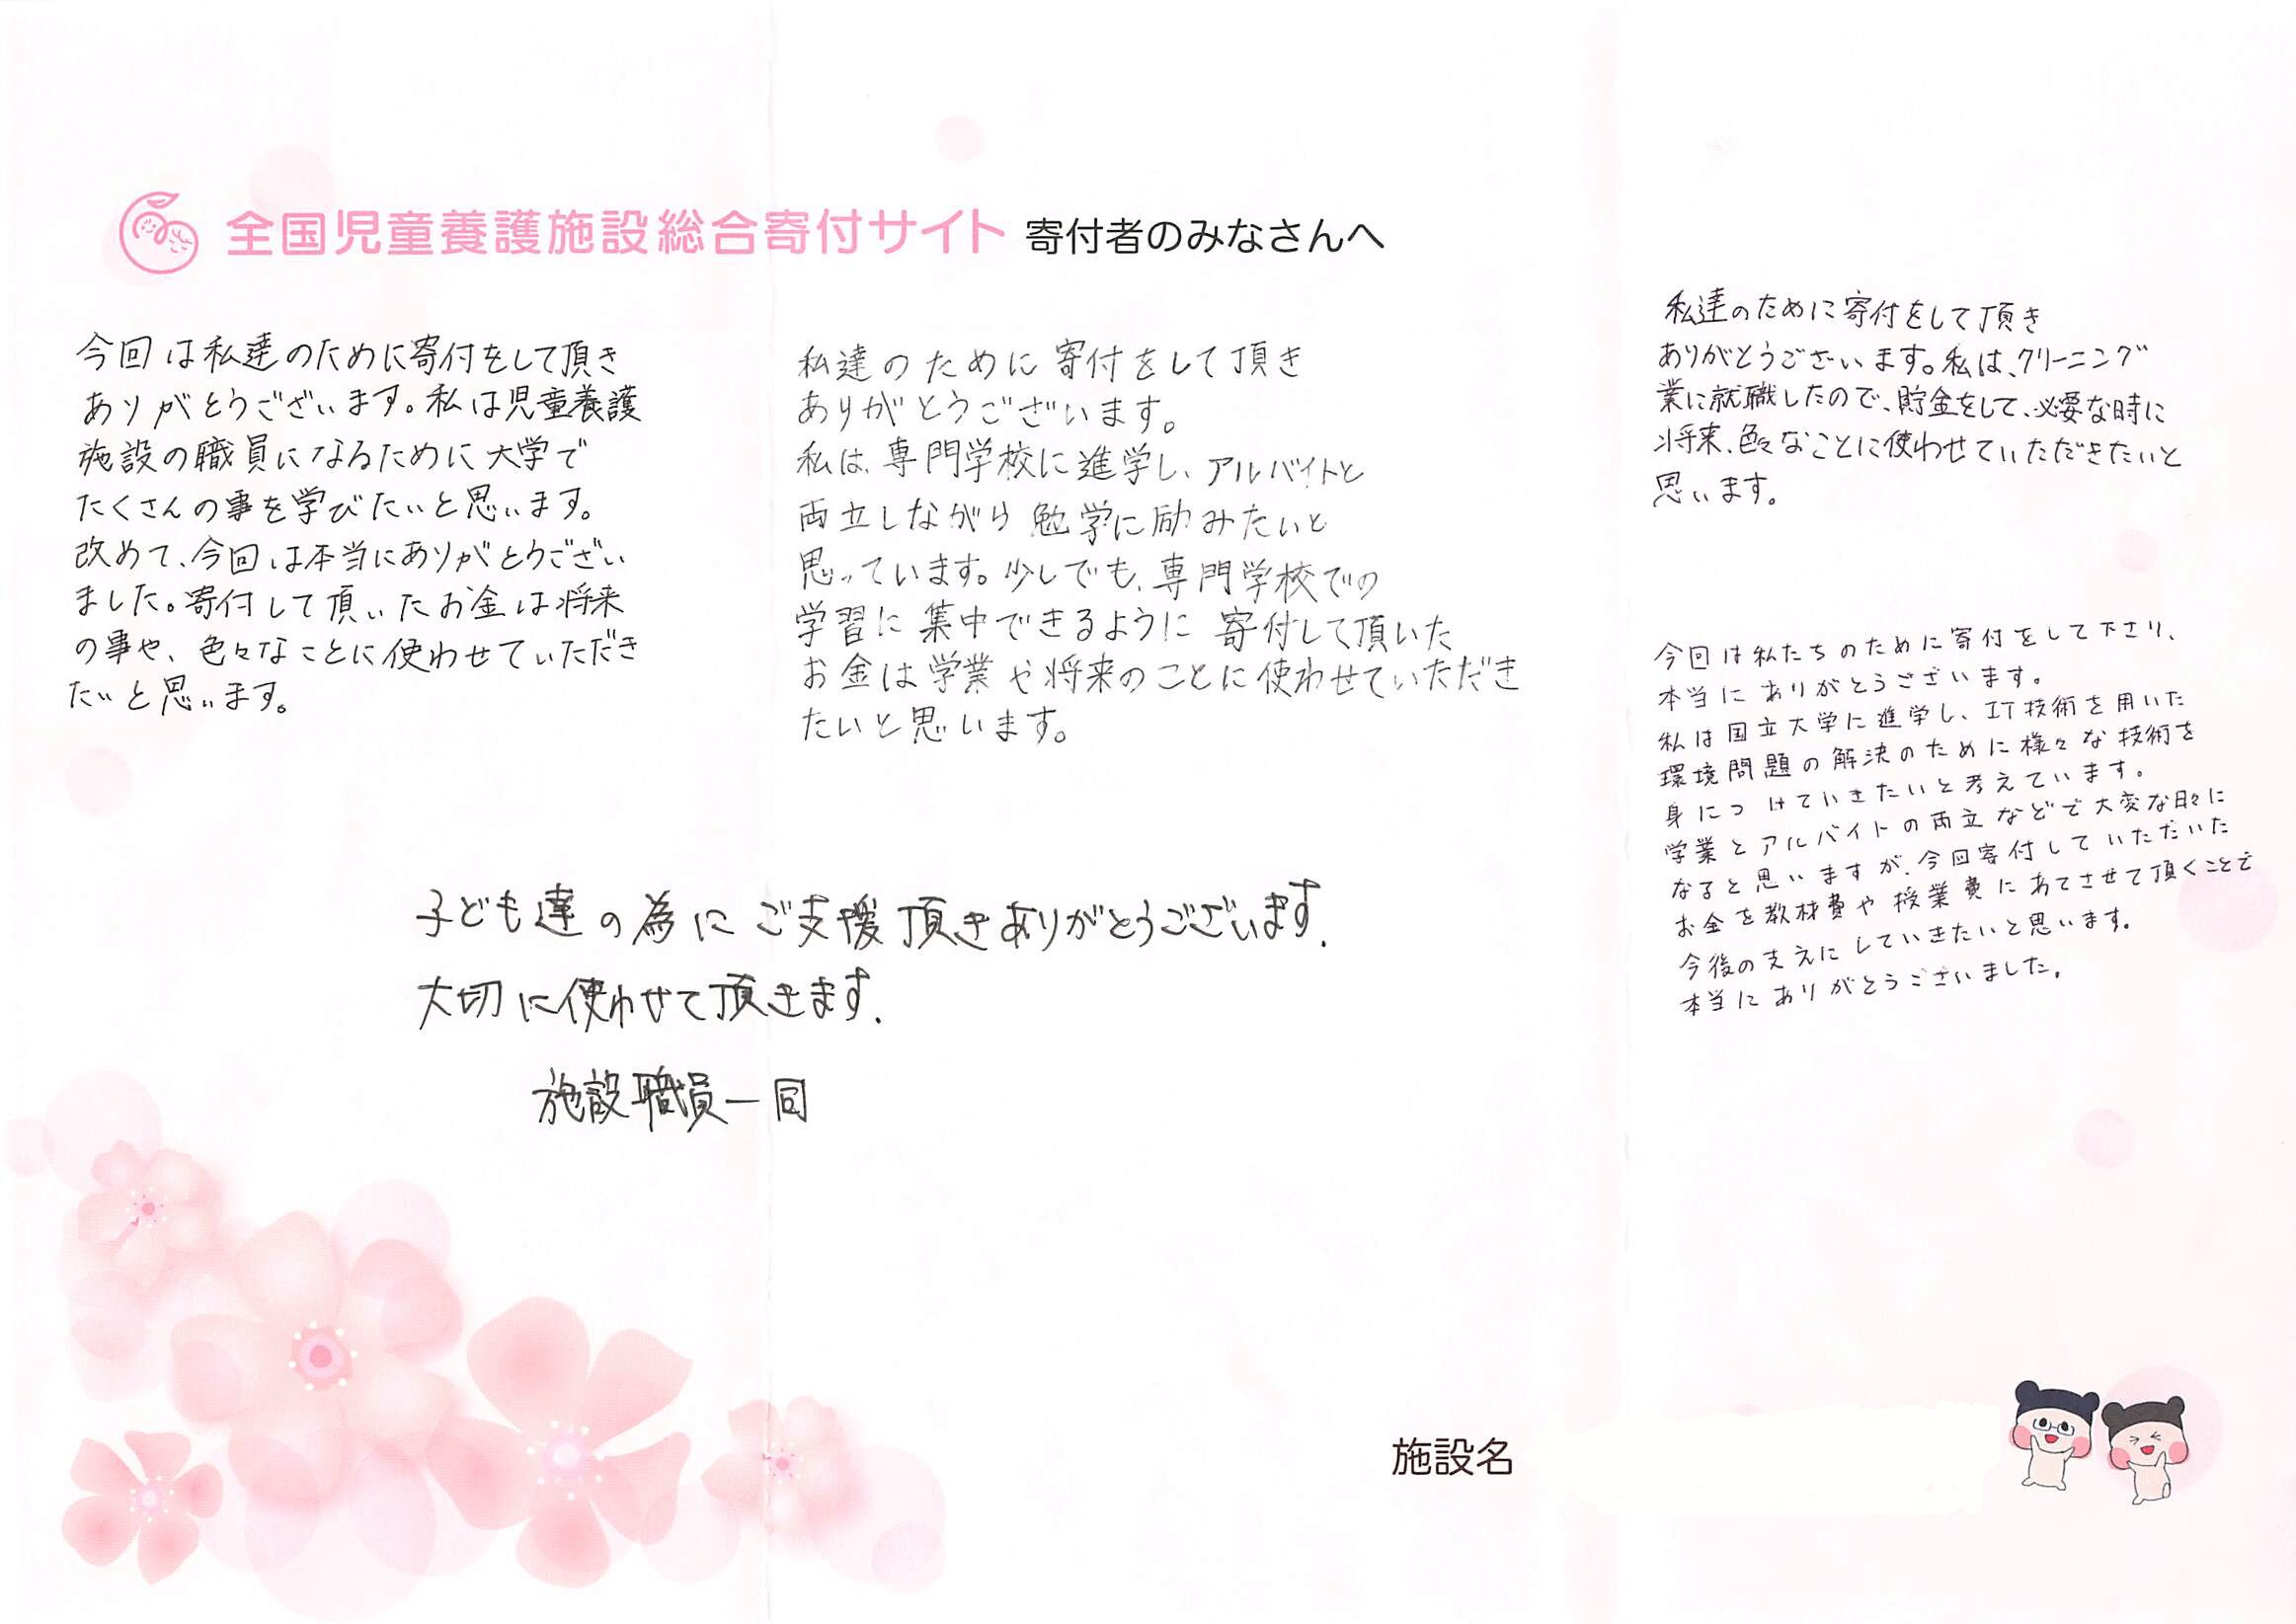 全国児童養護施設総合寄付サイト 寄付者のみなさんへ
今回は私達のために寄付をして頂き
ありがとうございます。私は児童養護
施設の職員になるために大学で
たくさんの事を学びたいと思います。
改めて、今回は本当にありがとうござい
ました。寄付して頂いたお金は将来
の事や、色々なことに使わせていただき
たいと思います。
私達のために寄付をして頂き
ありがとうございます。
私は、専門学校に進学し、アルバイトと
両立しながら勉学に励みたいと
思っています。少しでも、専門学校での
学習に集中できるように寄付して頂いた
お金は学業や将来のことに使わせていただき
たいと思います。
私達のために寄付をして頂き
ありがとうございます。私は、クリーニング
業に就職したので、貯金をして、必要な時に
将来、色々なことに使わせていただきたいと
思います。
今回は私たちのために寄付をして下さり、
本当にありがとうございます。
私は国立大学に進学し、IT技術を用いた
環境問題の解決のために様々な技術を
身につけていきたいと考えています。
学業とアルバイトの両立などで大変な日々に
なると思いますが、今回寄付していただいた
お金を教材費や授業費にあてさせて頂くことで
今後の支えにしていきたいと思います。
本当にありがとうございました。
子ども達の為にご支援頂きありがとうございます.
大切に使わせて頂きます.
施設職員一同
施設名